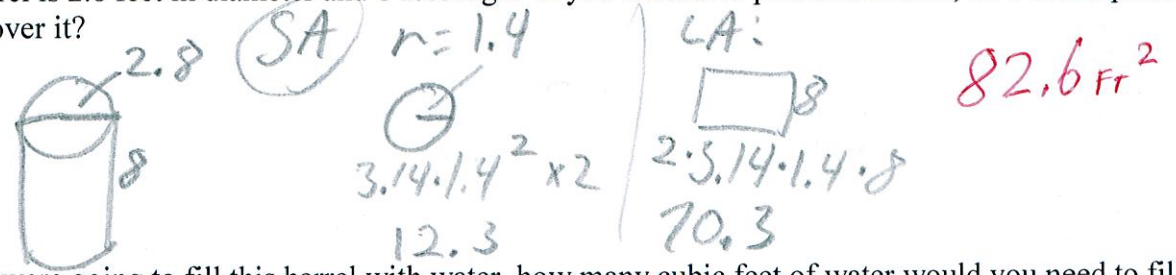 over it?
2.8
8
SA
r = 1.4
3.14·1.4² x2
12.3
LA:
8
2·3.14·1.4·8
70.3
82.6 FT²
fill this barrel with water, how many cubic feet of water would you need to fil